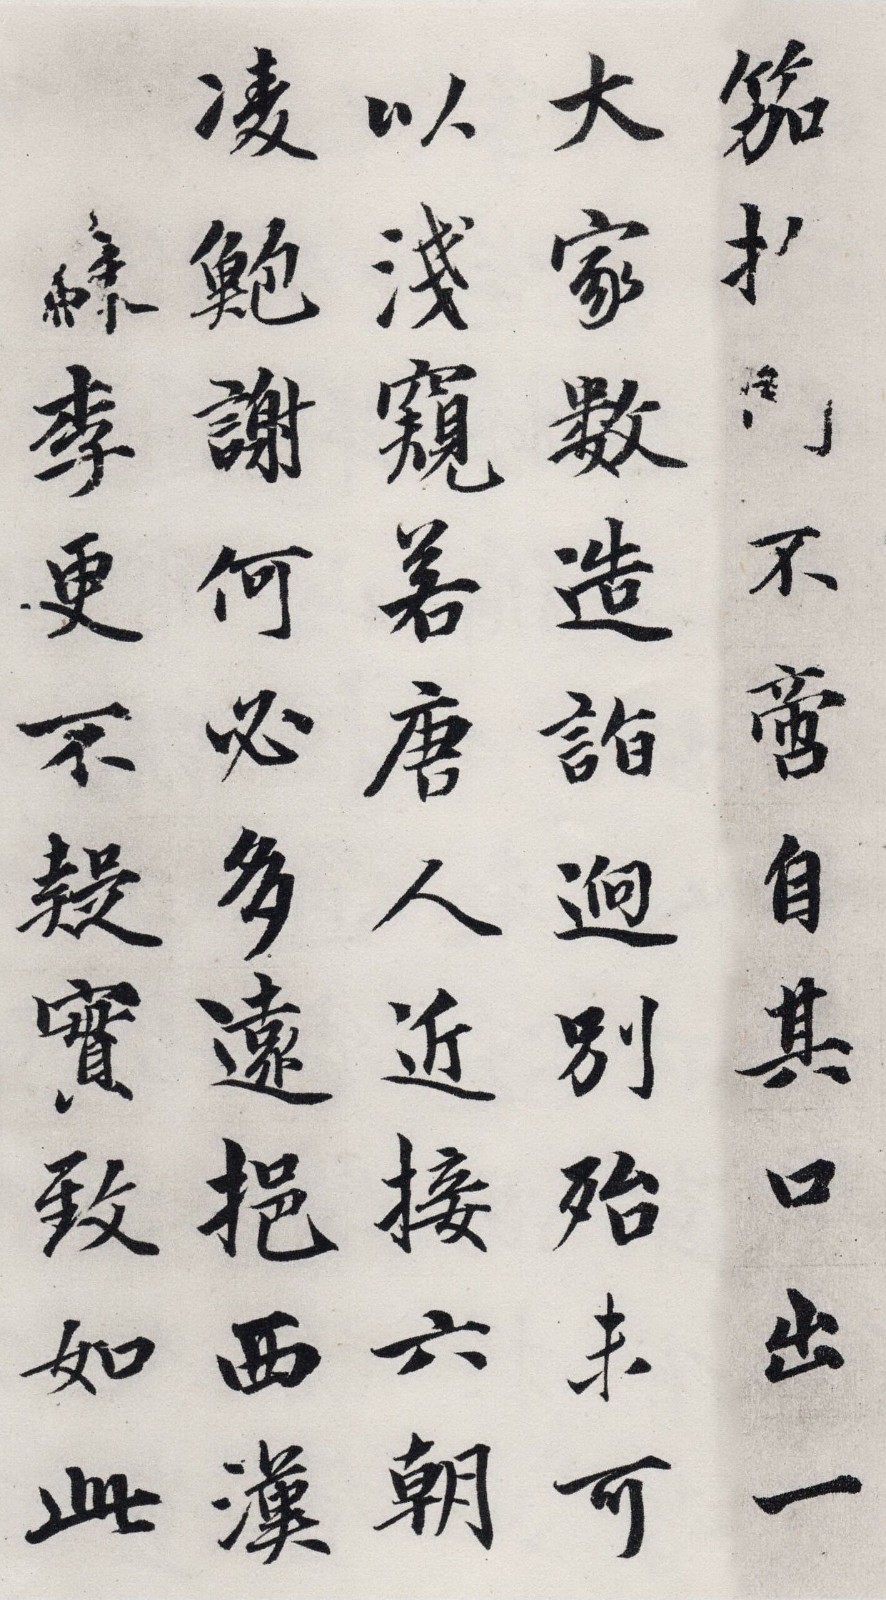 笳於不啻自其口出一
大家數造詣迥別殆未可
以淺窺若唐人近接六朝
凌鮑謝何必多遠挹西漢
蘇李更不疑實致如此